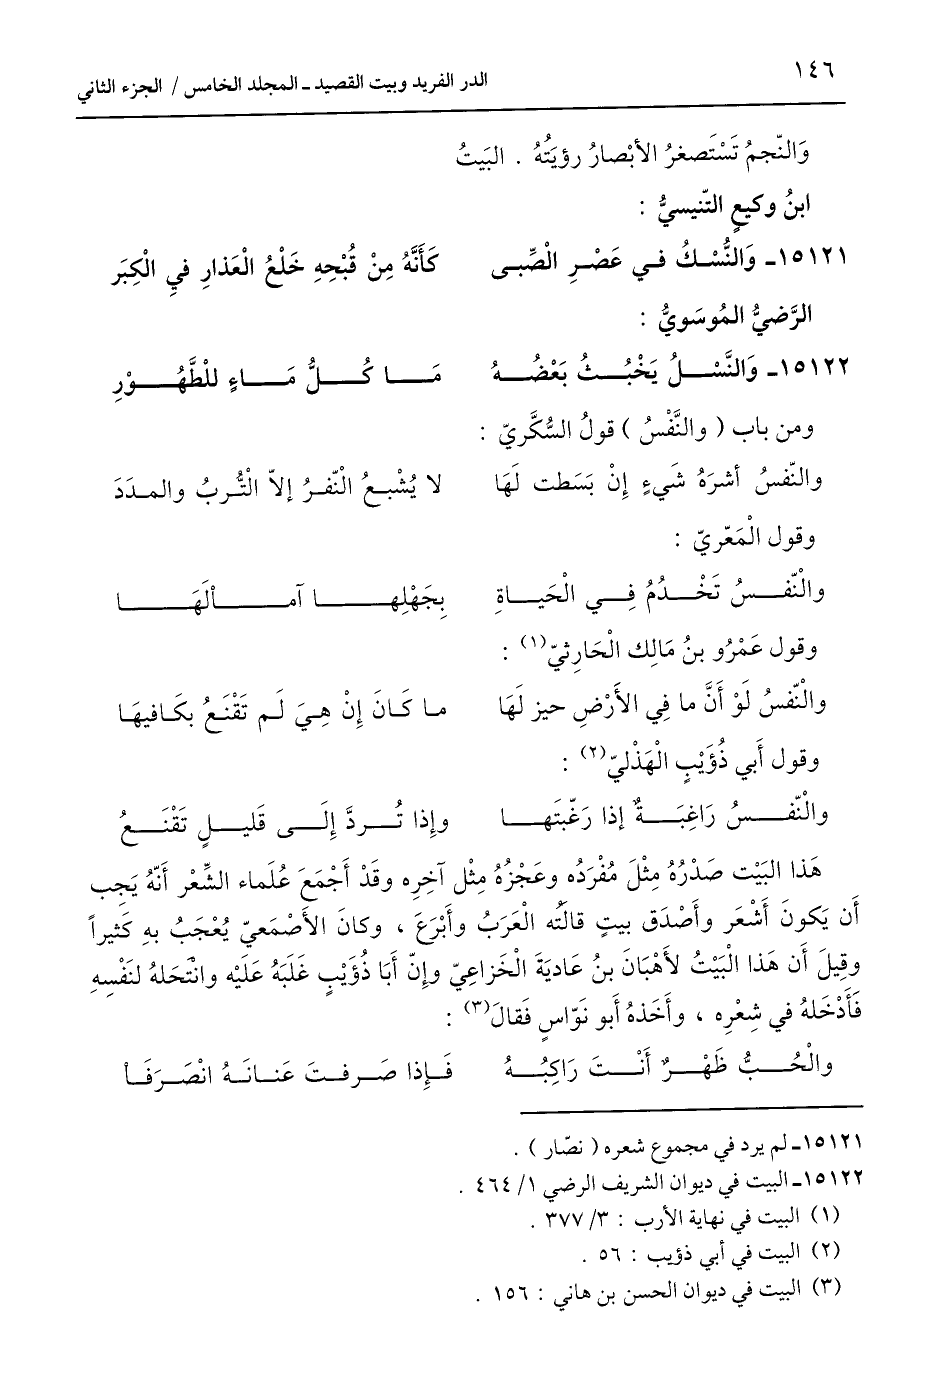 ١٤٦
الدر الفريد وبيت القصيد ـ المجلد الخامس / الجزء الثاني
وَالنّجمُ تَسْتَصغرُ الأبْصارُ رؤيَتُهُ . البَيتُ
ابنُ وكيعٍ التّنيسيُّ :
١٥١٢١ـ وَالنُّسْكُ في عَصْرِ الْصِّبى كَأَنَّهُ مِنْ قُبْحِهِ خَلْعُ الْعَذارِ فيِ الْكِبَر
الرَّضيُّ الموُسَويُّ :
١٥١٢٢ـ وَالنَّسْلُ يَخْبُثُ بَعْضُهُ مَا كُلُّ مَاءٍ للْطَّهُوْرِ
ومن باب ( والنَّفْسُ ) قولُ السُّكَّريّ :
والنّفسُ أشرَهُ شَيءٍ إنْ بَسَطت لَهَا لا يُشْبعُ الْنّفرُ إلاّ الْتُّربُ والمدَدَ
وقول الْمَعّريّ :
والْنّفسُ تَخْدُمُ فِي الْحَيَاةِ بِجَهْلِهَا آمالَهَا
وقول عَمْرُو بنُ مَالِك الْحَارِثيّ(١) :
والْنّفسُ لَوْ أَنَّ ما فِي الأَرْضِ حيز لَهَا ما كَانَ إنْ هِيَ لَم تَقْنَعُ بكَافيهَا
وقول أَبي ذُؤَيْبٍ الْهَذْليّ(٢) :
والْنّفسُ رَاغِبَةٌ إذا رَغّبتَها وإذا تُردَّ إلَى قَليلٍ تَقْنَعُ
هَذا البَيْت صَدْرُهُ مِثْلَ مُفْرَدُه وعَجْزُهُ مِثْل آخِرِه وقَدْ أَجْمَعَ عُلَماء الشِّعْر أَنّهُ يَجب
أَن يَكونَ أَشْعَر وأَصْدَق بيتٍ قالتُه الْعَربُ وأَبْرَعَ ، وكانَ الأَصْمَعيّ يُعْجَبُ بهِ كَثيراً
وقيلَ أَن هَذا الْبَيْتُ لأَهْبَانَ بنُ عاديَةَ الْخَزاعِيّ وإنّ أَبَا ذُؤَيْبٍ غَلَبَهُ عَلَيْه وانْتَحَلهُ لنَفْسِهِ
فَأَدْخَلهُ في شِعْرِه ، وأَخذهُ أَبو نَوّاسٍ فَقالَ(٣) :
والْحُبُّ ظَهْرٌ أَنْتَ رَاكِبُهُ فَإذا صَرفتَ عنَانَهُ انْصَرَفَا
١٥١٢١ـ لم يرد في مجموع شعره ( نصّار ) .
١٥١٢٢ـ البيت في ديوان الشريف الرضي ١/ ٤٦٤ .
(١) البيت في نهاية الأرب : ٣/ ٣٧٧ .
(٢) البيت في أبي ذؤيب : ٥٦ .
(٣) البيت في ديوان الحسن بن هاني : ١٥٦ .